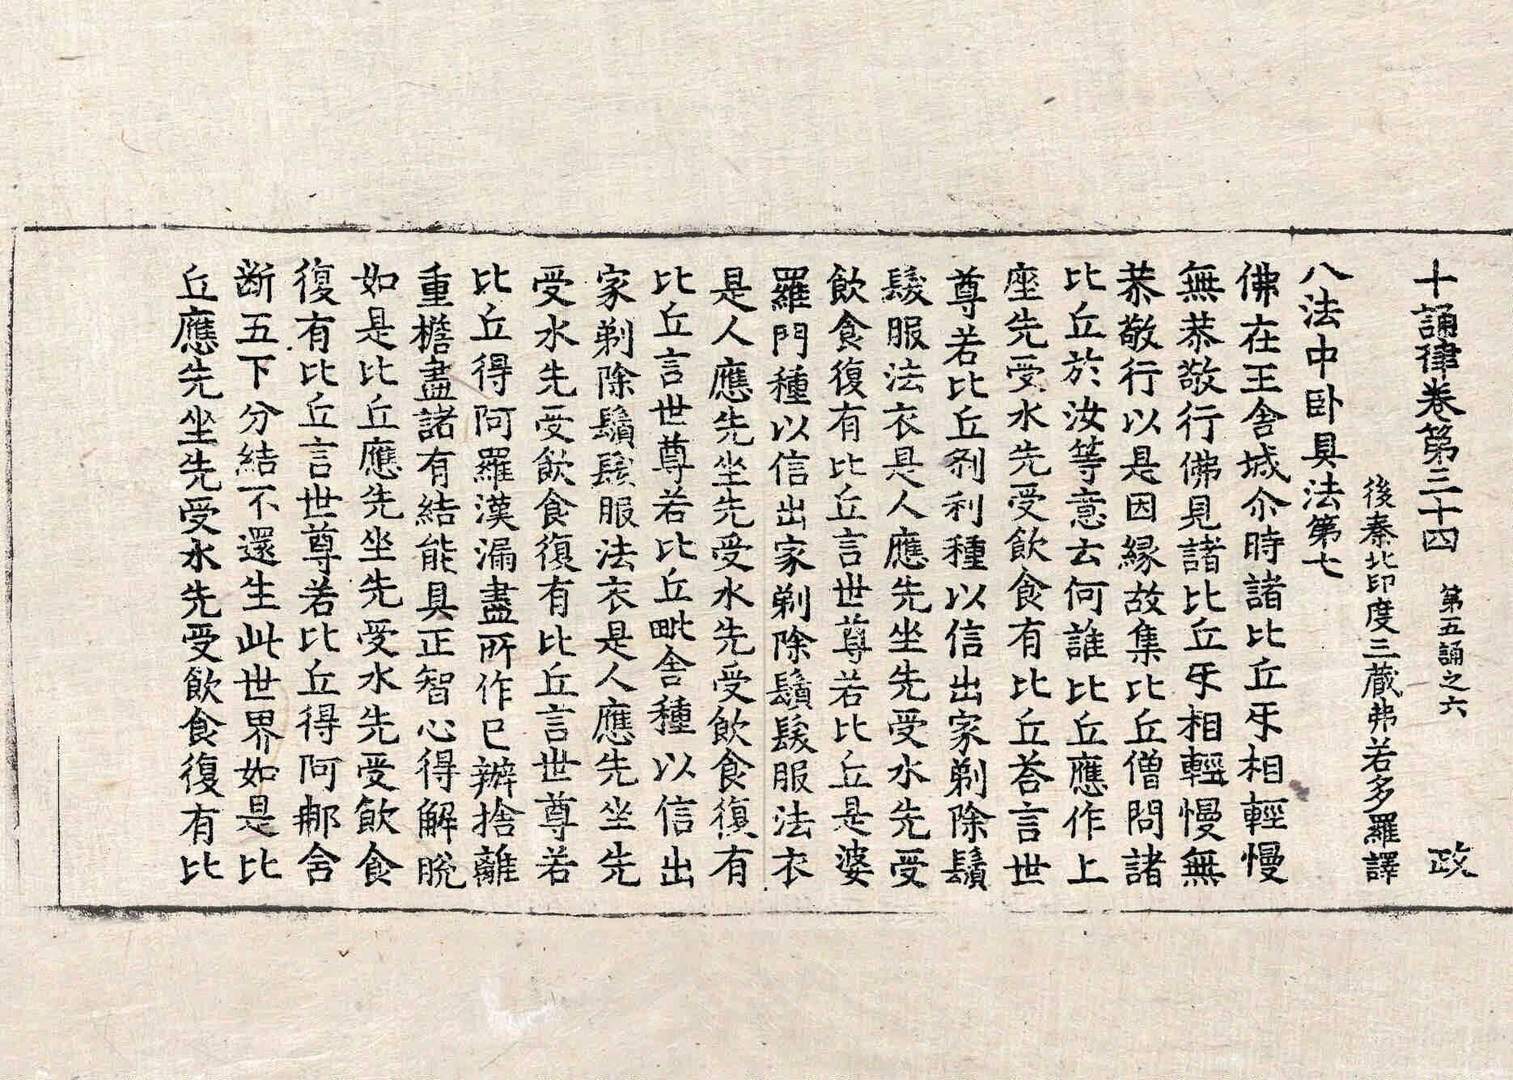 十誦律卷第三十四 第五誦之六 政
後秦北印度三藏弗若多羅譯
八法中卧具法第七
佛在王舍城尒時諸比丘㸦相輕慢
無恭敬行佛見諸比丘㸦相輕慢無
恭敬行以是因緣故集比丘僧問諸
比丘於汝等意云何誰比丘應作上
座先受水先受飲食有比丘荅言世
尊若比丘刹利種以信出家剃除鬚
髮服法衣是人應先坐先受水先受
飲食復有比丘言世尊若比丘是婆
羅門種以信出家剃除鬚髮服法衣
是人應先坐先受水先受飲食復有
比丘言世尊若比丘毗舍種以信出
家剃除鬚髮服法衣是人應先坐先
受水先受飲食復有比丘言世尊若
比丘得阿羅漢漏盡所作已辦捨離
重檐盡諸有結能具正智心得解脫
如是比丘應先坐先受水先受飲食
復有比丘言世尊若比丘得阿那含
斷五下分結不還生此世界如是比
丘應先坐先受水先受飲食復有比